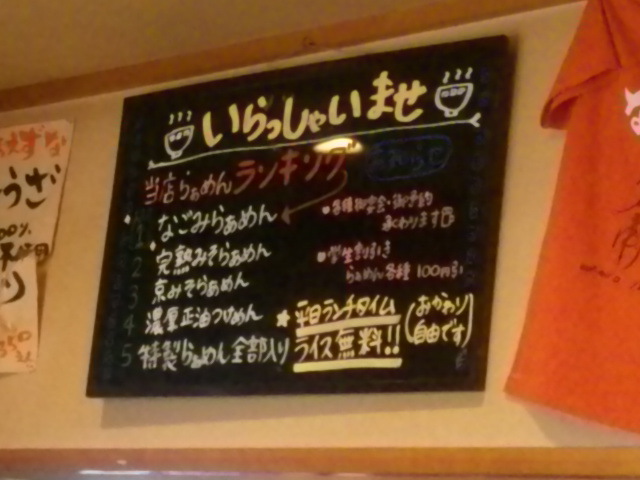 いらっしゃいませ
当店らぁめんランキング
おしらせ
1 なごみらぁめん
2 完熟みそらぁめん
3 京みそらぁめん
4 濃厚正油つけめん
5 特製らぁめん全部入り
各種御宴会・御予約
承ります
学生割引き
らぁめん各種 100円引
★平日ランチタイム
ライス無料!!
(おかわり
自由です)